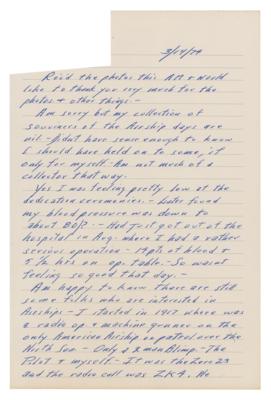 3/14/74
Rec'd the photos this AM & would
like to thank you very much for the
photos & other things. -
Am sorry but my collection of
souvenirs of the Airship days are
nil - Didn't have sense enough to know
I should have held on to some, if
only for myself. Am not much of a
collector that way.
Yes I was feeling pretty low at the
dedication ceremonies. - Later found
my blood pressure was down to
about 80/? - Had just got out of the
hospital in Aug. where I had a rather
serious operation - 19pts of blood &
5 1/2 hrs on op. table. - So wasn't
feeling so good that day. -
Am happy to know there are still
some folks who are interested in
Airships - I started in 1917 where was
a radio op & machine gunner on the
only American Airship on patrol over the
North Sea - Only a 2 man Blimp. - The
Pilot & myself - It was the Zero 23
and the radio call was ZK4. He